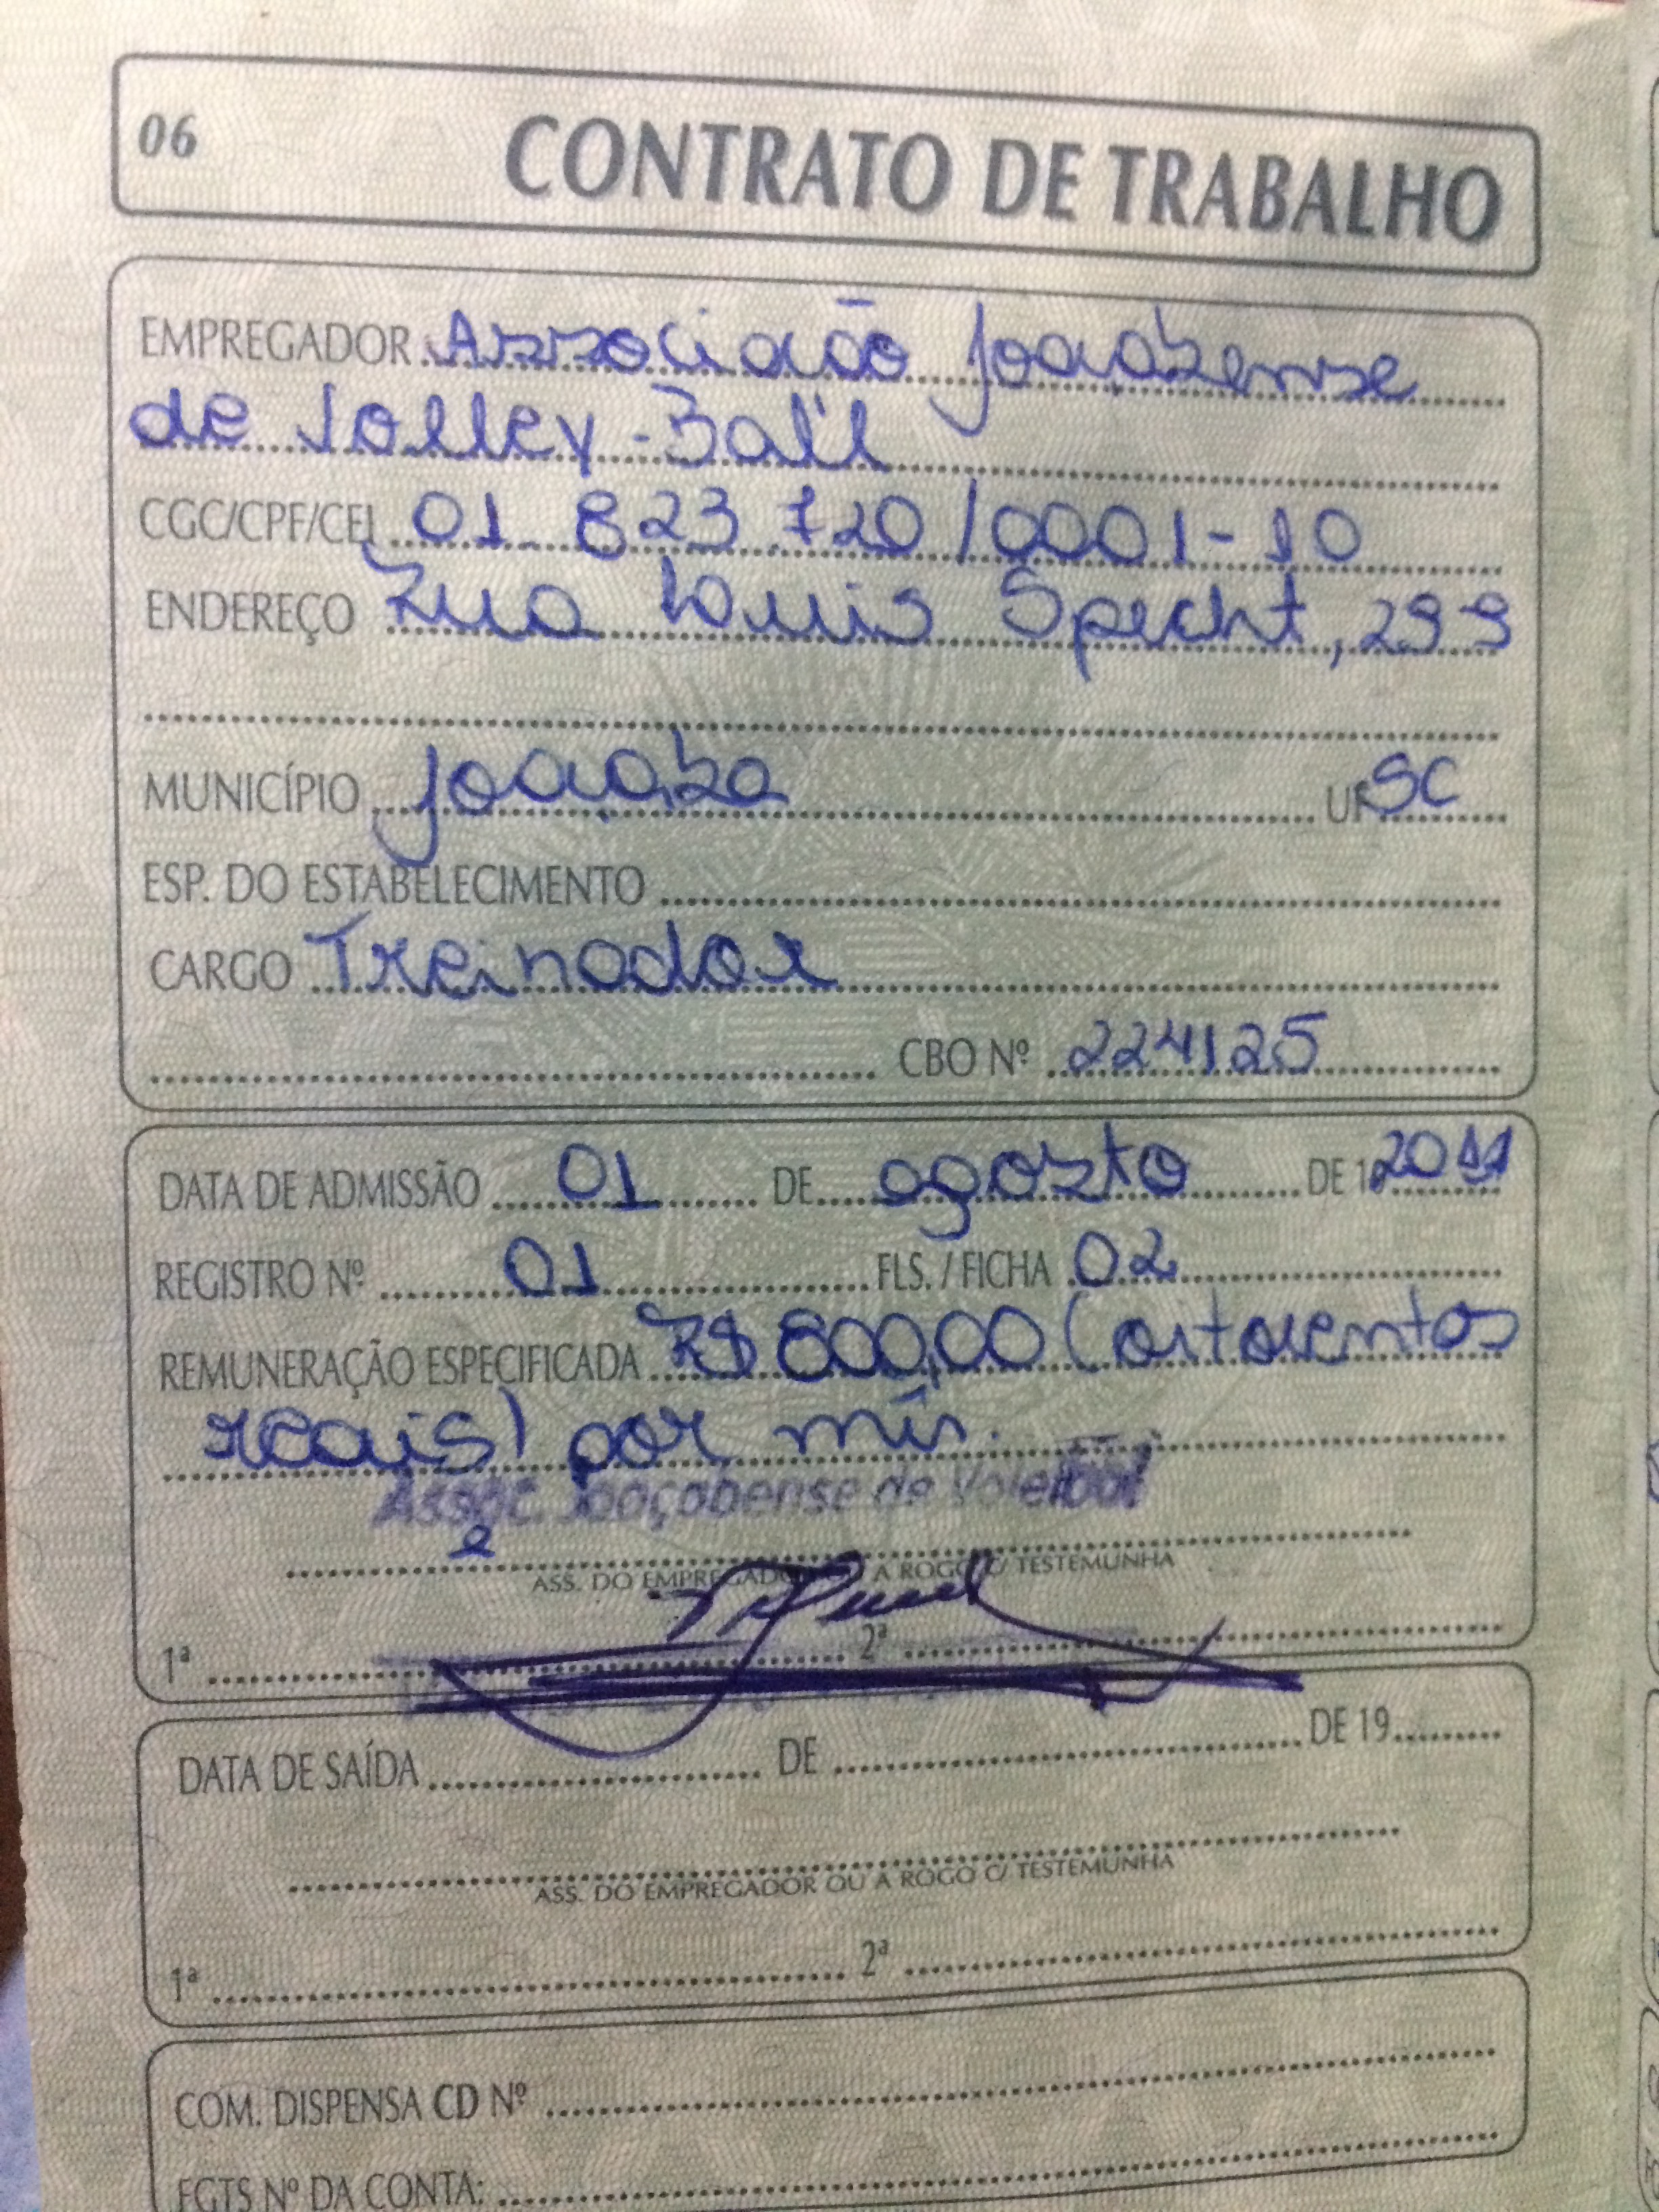 06 CONTRATO DE TRABALHO
EMPREGADOR Associação Joaçabense
de Volley-Ball
CGC/CPF/CEI 01 823 720/0001-10
ENDEREÇO Rua Louis Specht, 299
MUNICÍPIO Joaçaba UF SC
ESP. DO ESTABELECIMENTO
CARGO Treinador
CBO Nº 224125
DATA DE ADMISSÃO 01 DE agosto DE 1 2011
REGISTRO Nº 01 FLS. / FICHA 02
REMUNERAÇÃO ESPECIFICADA R$ 800,00 (oitocentos
reais) por mês.
Assoc. Joaçabense de Voleibol
ASS. DO EMPREGADOR OU A ROGO C/ TESTEMUNHA
1ª 2ª
DATA DE SAÍDA DE DE 19
ASS. DO EMPREGADOR OU A ROGO C/ TESTEMUNHA
1ª 2ª
COM. DISPENSA CD Nº
FGTS Nº DA CONTA: